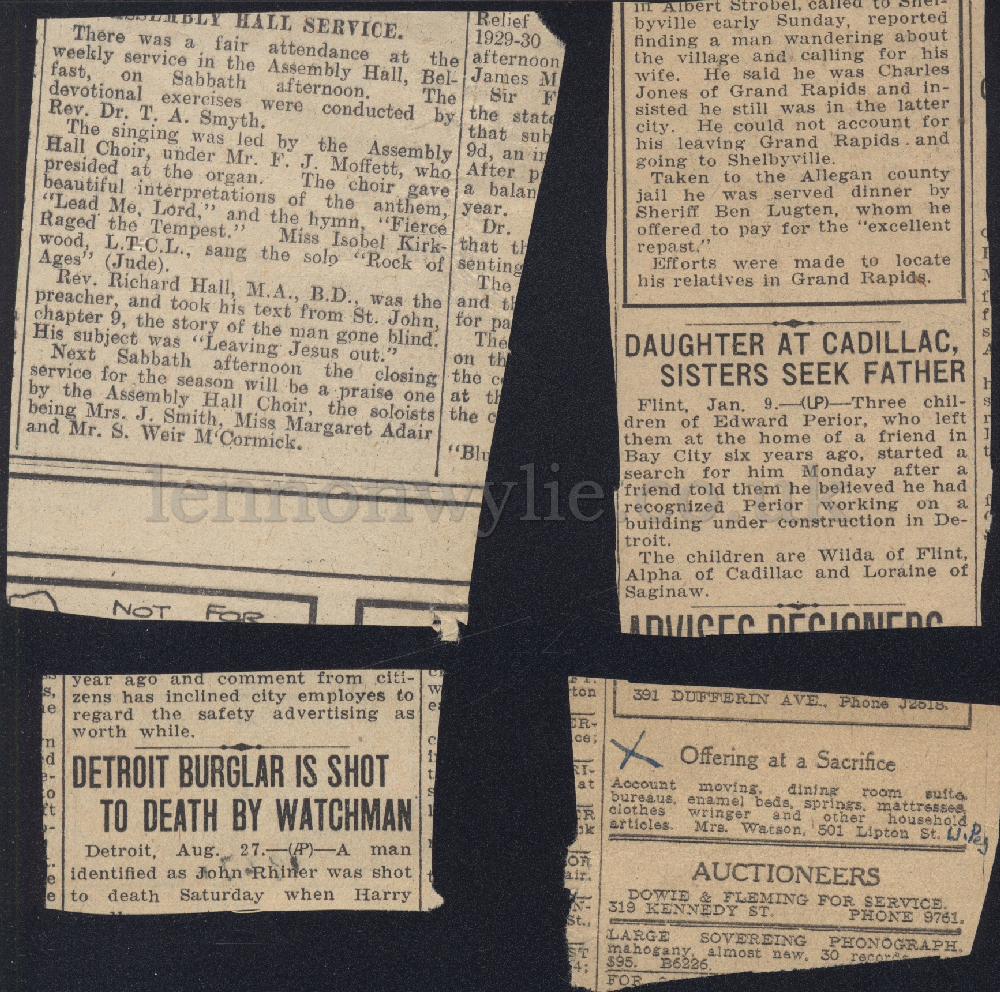 ASSEMBLY HALL SERVICE.
There was a fair attendance at the
weekly service in the Assembly Hall, Bel-
fast, on Sabbath afternoon. The
devotional exercises were conducted by
Rev. Dr. T. A. Smyth.
The singing was led by the Assembly
Hall Choir, under Mr. F. J. Moffett, who
presided at the organ. The choir gave
beautiful interpretations of the anthem,
"Lead Me, Lord," and the hymn, "Fierce
Raged the Tempest." Miss Isobel Kirk-
wood, L.T.C.L., sang the solo "Rock of
Ages" (Jude).
Rev. Richard Hall, M.A., B.D., was the
preacher, and took his text from St. John,
chapter 9, the story of the man gone blind.
His subject was "Leaving Jesus out."
Next Sabbath afternoon the closing
service for the season will be a praise one
by the Assembly Hall Choir, the soloists
being Mrs. J. Smith, Miss Margaret Adair
and Mr. S. Weir M'Cormick.
Relief
1929-30
afternoon
James M
Sir F
the state
that sub
9d, an in
After p
a balan
year.
Dr.
that th
senting
The
and th
for pa
The
on th
the c
at th
the c
"Blu
NOT FOR
in Albert Strobel, called to Shel-
byville early Sunday, reported
finding a man wandering about
the village and calling for his
wife. He said he was Charles
Jones of Grand Rapids and in-
sisted he still was in the latter
city. He could not account for
his leaving Grand Rapids and
going to Shelbyville.
Taken to the Allegan county
jail he was served dinner by
Sheriff Ben Lugten, whom he
offered to pay for the "excellent
repast."
Efforts were made to locate
his relatives in Grand Rapids.
DAUGHTER AT CADILLAC,
SISTERS SEEK FATHER
Flint, Jan. 9.—(UP)—Three chil-
dren of Edward Perior, who left
them at the home of a friend in
Bay City six years ago, started a
search for him Monday after a
friend told them he believed he had
recognized Perior working on a
building under construction in De-
troit.
The children are Wilda of Flint,
Alpha of Cadillac and Loraine of
Saginaw.
ADVISES DESIGNERS
lennonwylie.co.uk
year ago and comment from citi-
zens has inclined city employes to
regard the safety advertising as
worth while.
DETROIT BURGLAR IS SHOT
TO DEATH BY WATCHMAN
Detroit, Aug. 27.—(AP)—A man
identified as John Rhiner was shot
to death Saturday when Harry
391 DUFFERIN AVE., Phone J2618.
Offering at a Sacrifice
Account moving, dining room suite,
bureaus, enamel beds, springs, mattresses,
clothes wringer and other household
articles. Mrs. Watson, 501 Lipton St. W.Peg
AUCTIONEERS
DOWIE & FLEMING FOR SERVICE.
319 KENNEDY ST. PHONE 9761.
LARGE SOVEREING PHONOGRAPH,
mahogany, almost new, 30 records
$95. B6226.
FOR